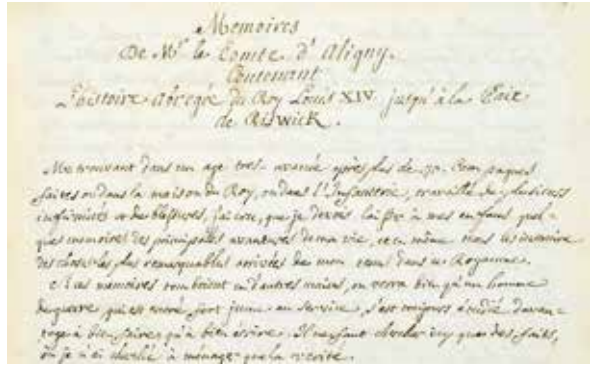 Memoires
De Mr. le Comte d'Aligny.
Contenant
L'histoire abregée du Roy Louis XIV. jusqu'à la Paix
de RiswicK.
Me trouvant dans un age tres-avancé après plus de 30. Campagnes
faites ou dans la maison du Roy, ou dans l'Infanterie, travaillé de plusieurs
infirmités et de blessures, j'ai cru, que je devois laisser à mes enfans quel-
ques memoires des principales avantures de ma vie, et en même tems les instruire
des choses les plus remarquables arrivées de mon tems dans le Royaume.
Si ces memoires tomboient en d'autres mains, on verra bien qu'un homme
de guerre, qui est entré fort jeune au service, s'est toujours étudié davan-
tage à bien faire, qu'à bien écrire. Il ne faut chercher icy que des faits,
où je n'ai cherché à ménager que la verité.